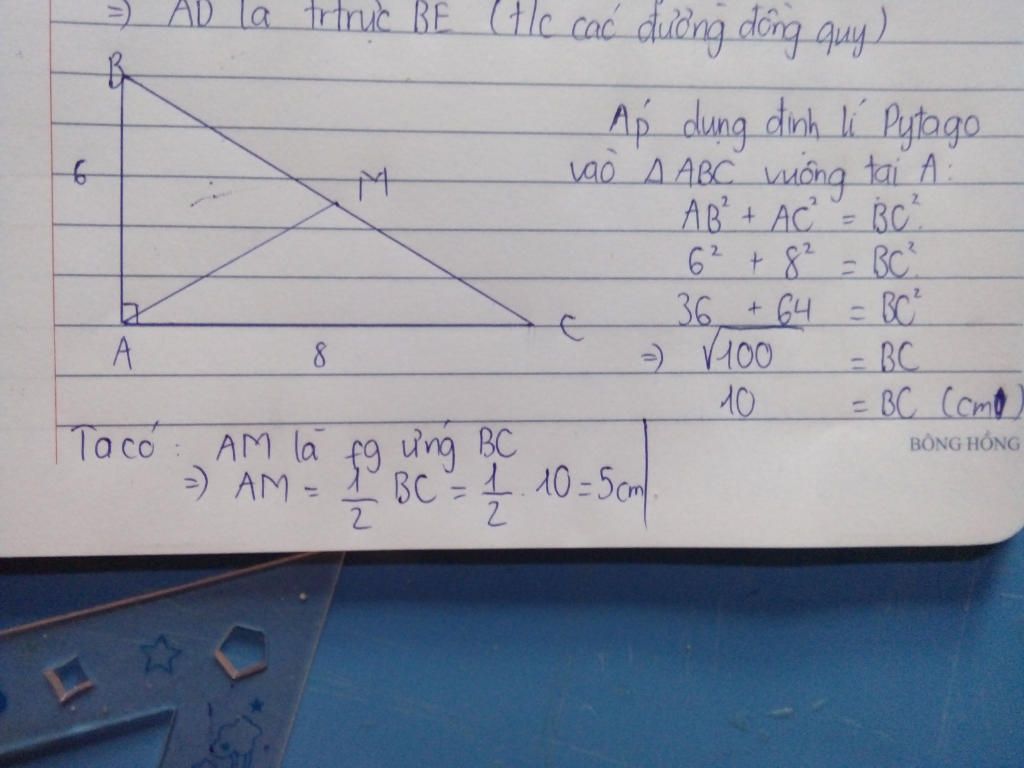 => AD là trtrực BE (t/c các đường đồng quy)
B
6
M
A
8
C
Áp dụng định lí Pytago
vào Δ ABC vuông tại A:
AB² + AC² = BC²
6² + 8² = BC²
36 + 64 = BC²
=> √100 = BC
10 = BC (cm)
BÔNG HỒNG
Ta có: AM là fg ứng BC
=> AM = 1/2 BC = 1/2 . 10 = 5cm.